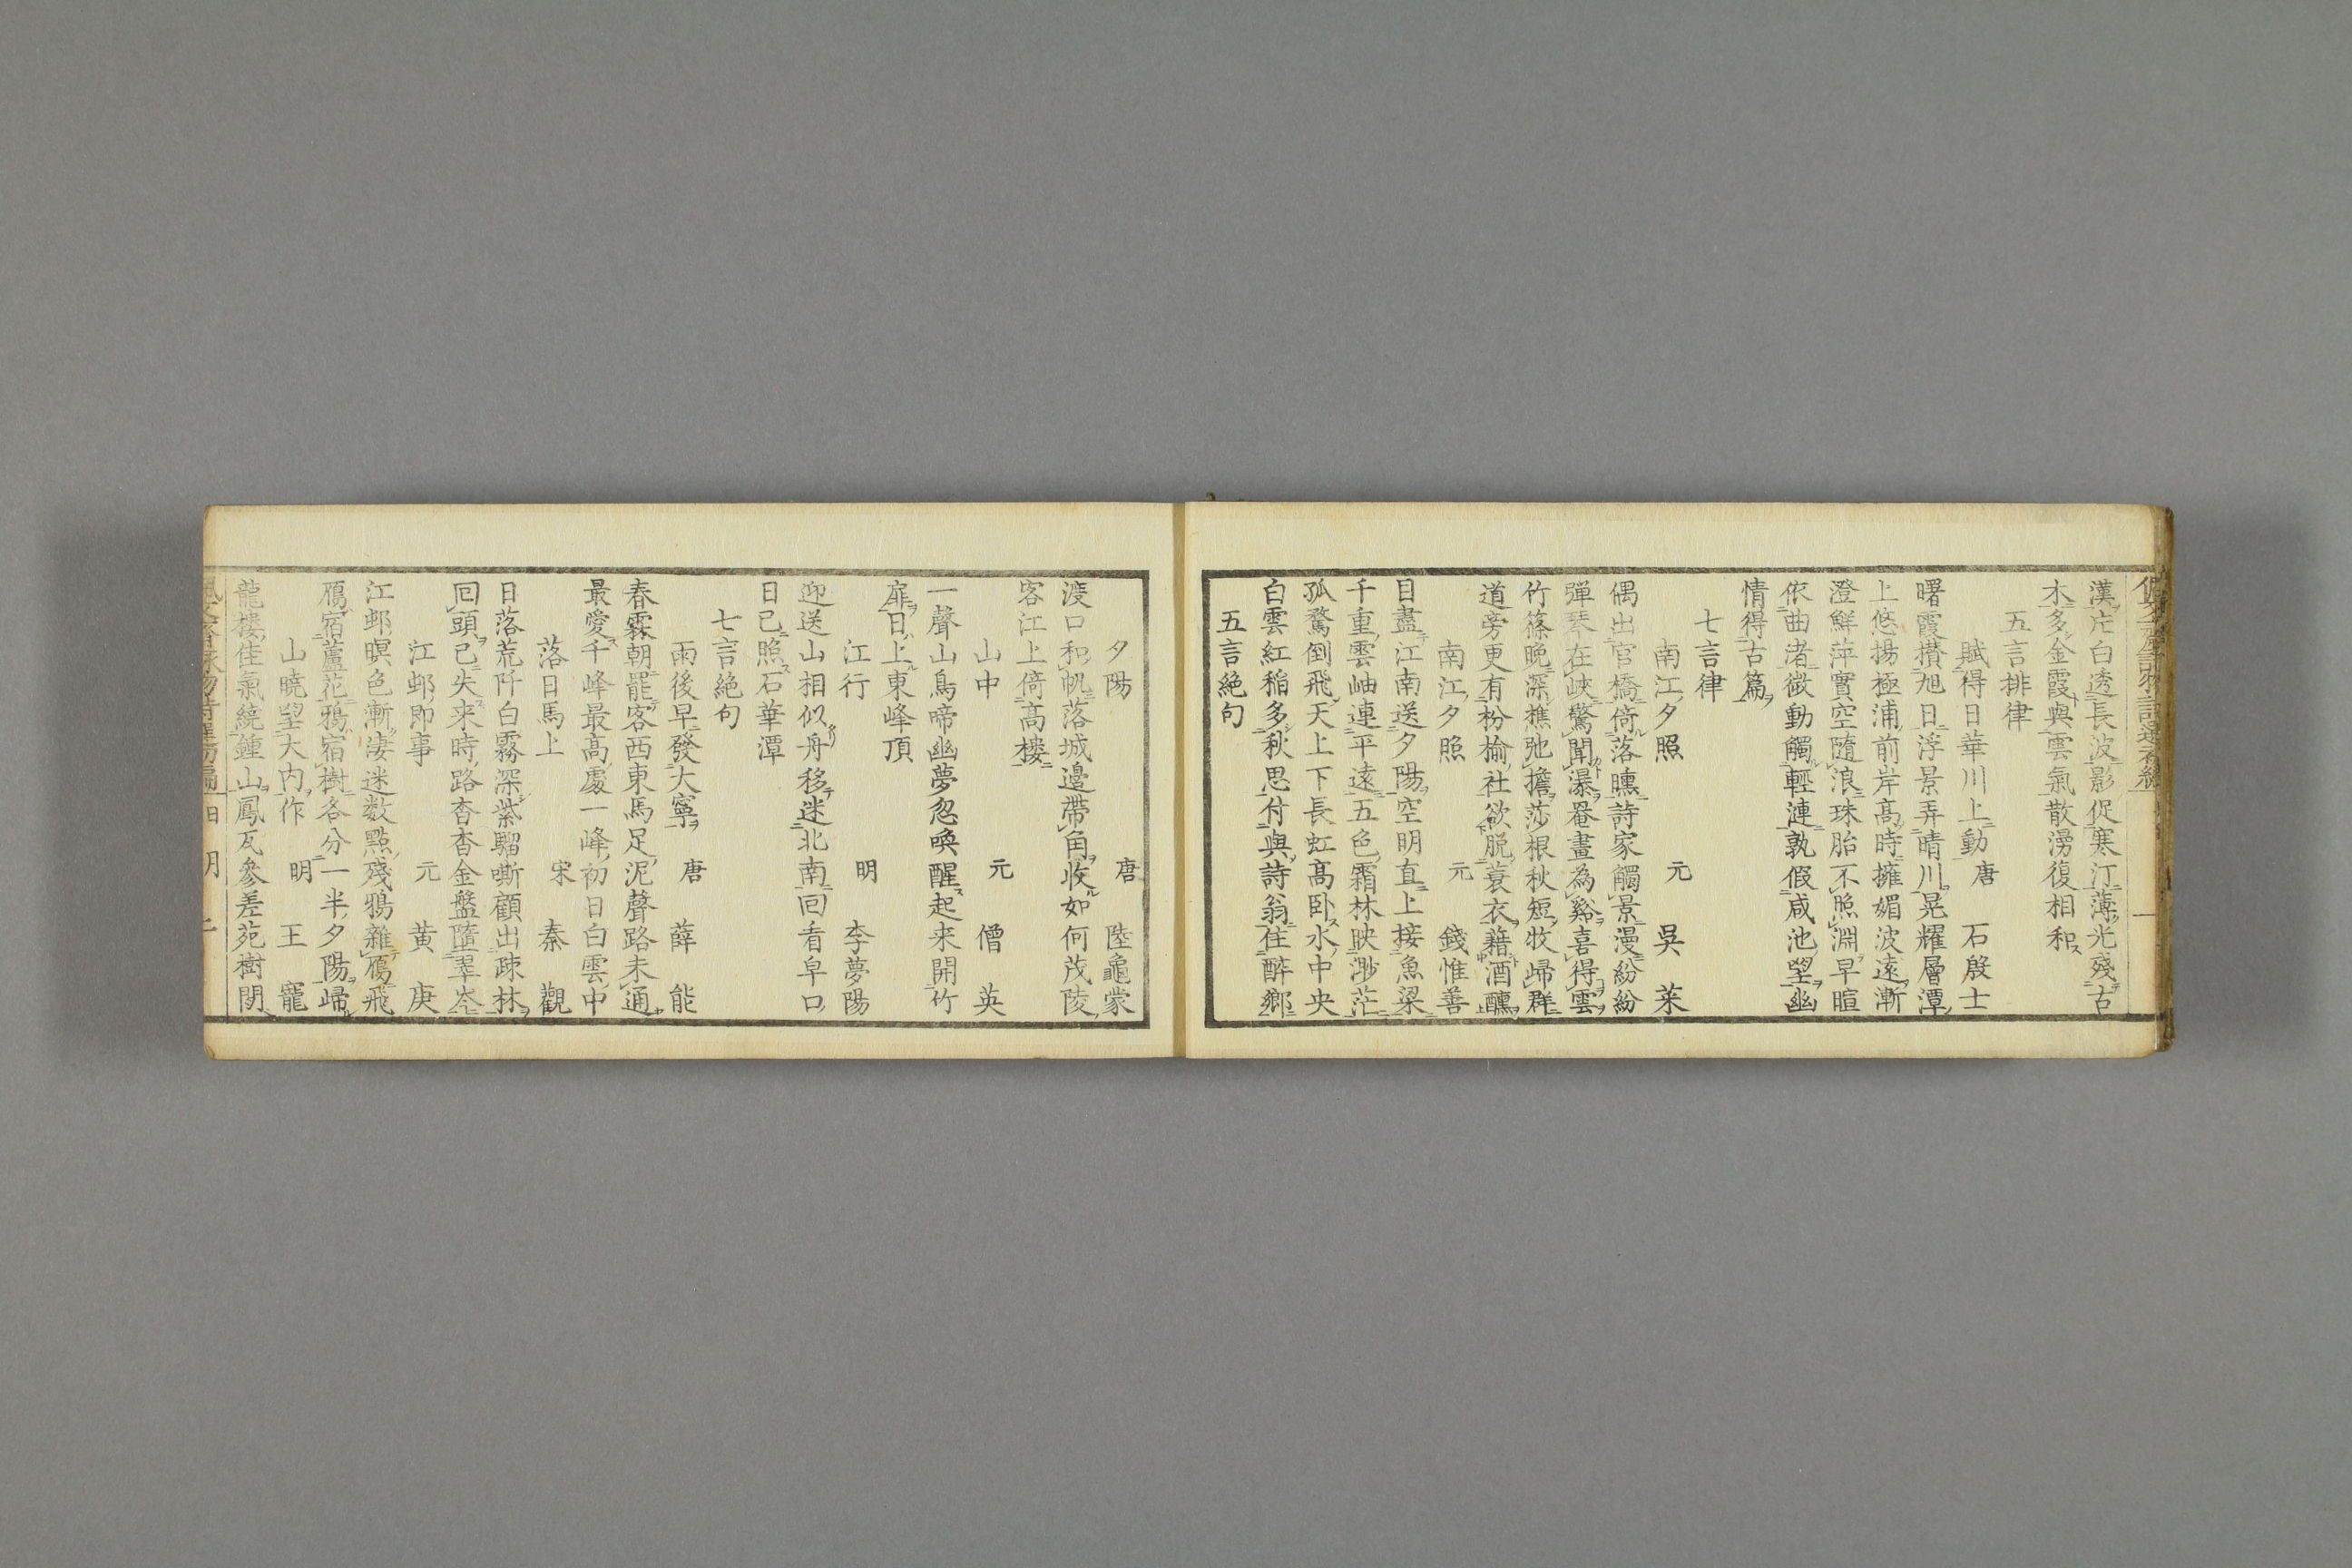 漢、㡯白透長波影促寒汀薄光殘古
木多金霞與雲氣散漫復相和
五言排律
賦得日華川上動 唐 石殷士
曙霞攢旭日浮景弄晴川晃耀層潭
上悠揚極浦前岸高時擁媚波遠漸
澄鮮萍實空隨浪珠胎不照淵早暄
依曲渚微動觸輕漣孰假咸池望幽
情得古篇
七言律
南江夕照 元 吳萊
偶出官橋倚落曛詩家觸景漫紛紛
彈琴在峽驚聞瀑罨畫為谿喜得雲
竹篠晚深樵弛擔莎根秋短牧歸群
道旁更有枌榆社欲脫蓑衣藉酒醺
南江夕照 元 錢惟善
目盡江南送夕陽空明直上接魚梁
千重雲岫連平遠五色霜林映渺茫
孤鶩倒飛天上下長虹高卧水中央
白雲紅稲多秋思付與詩翁住醉鄉
五言絕句
夕陽 唐 陸龜蒙
渡口和帆落城邊帶角收如何茂陵
客江上倚高樓
山中 元 僧英
一聲山鳥啼幽夢忽喚醒起来開竹
扉日上東峰頂
江行 明 李夢陽
迎送山相似舟移迷北南回看阜口
日已照石華潭
七言絕句
雨後早發大寧 唐 薛能
春霖朝罷客西東馬足泥聲路未通
最愛千峰最高處一峰初日白雲中
落日馬上 宋 秦觀
日落荒阡白霧深紫騮嘶顧出疎林
回頭已失来時路杳杳金盤墮翠岑
江邨即事 元 黃庚
江邨暝色漸淒迷数點殘鴉雜鴈飛
鴈宿蘆花鴉宿樹各分一半夕陽歸
山曉望大内作 明 王寵
龍樓佳氣繞鍾山鳳瓦參差苑樹閒